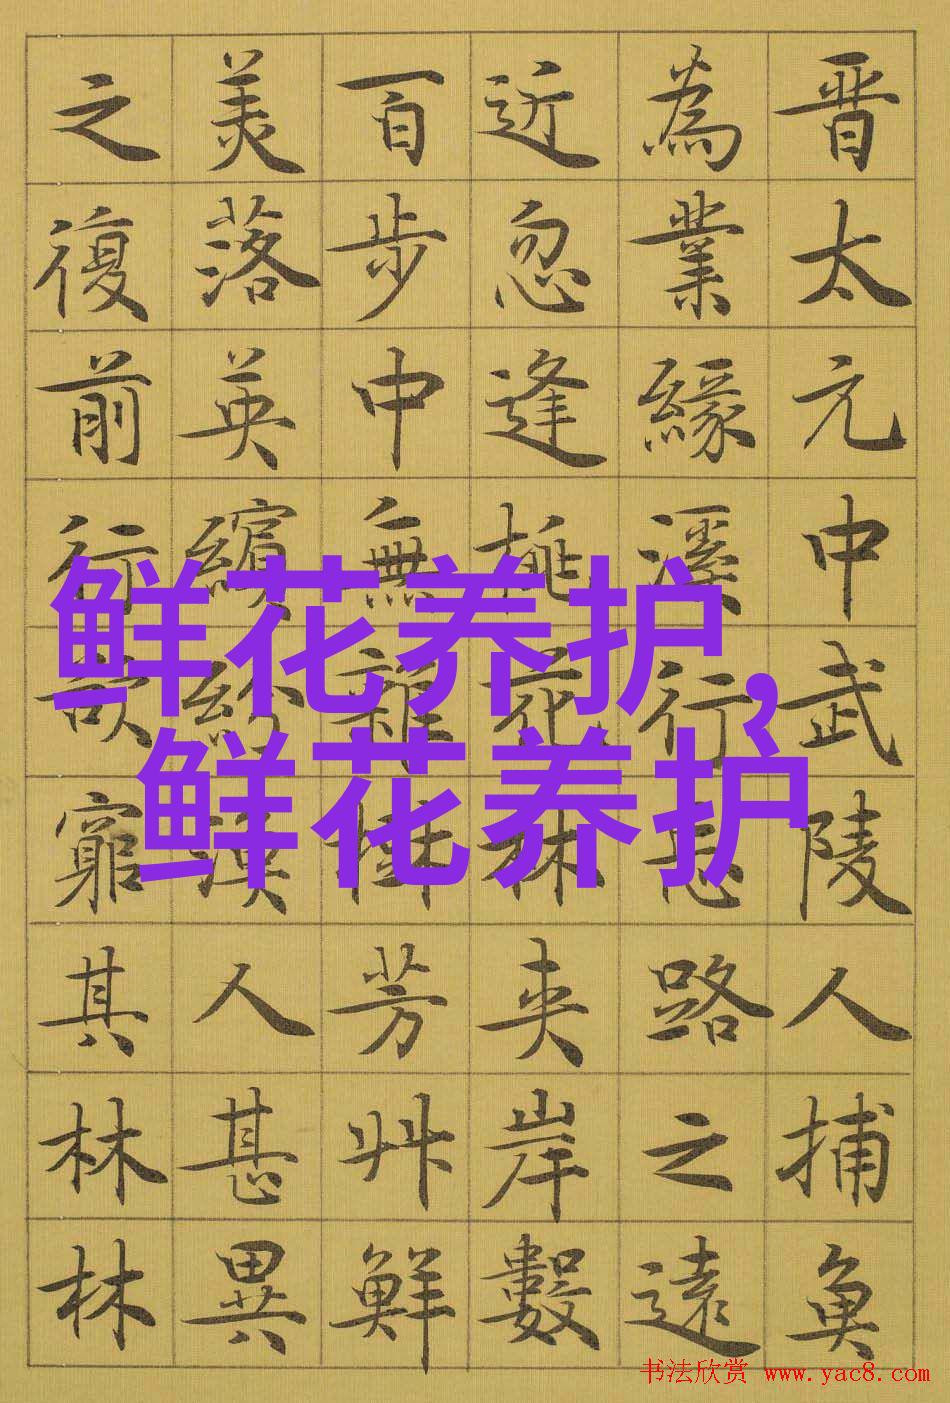 晋太元中武陵人捕魚
為業緣溪行忘路之遠
近忽逢桃花林夾岸數
百步中無雜樹芳艸鮮
美落英繽紛漁人甚異
之復前行欲窮其林林
鲜花养护,
鲜花养护
书法欣赏 www.yac8.com